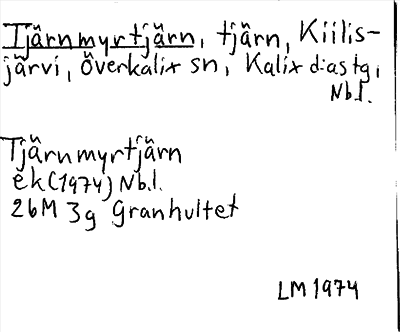 Tjärnmyrtjärn, tjärn, Kiilis-
järvi, Överkalix sn, Kalix d:as tg,
Nb.l.
Tjärnmyrtjärn
ek (1974) Nb.l.
26M 3g Granhultet
LM 1974